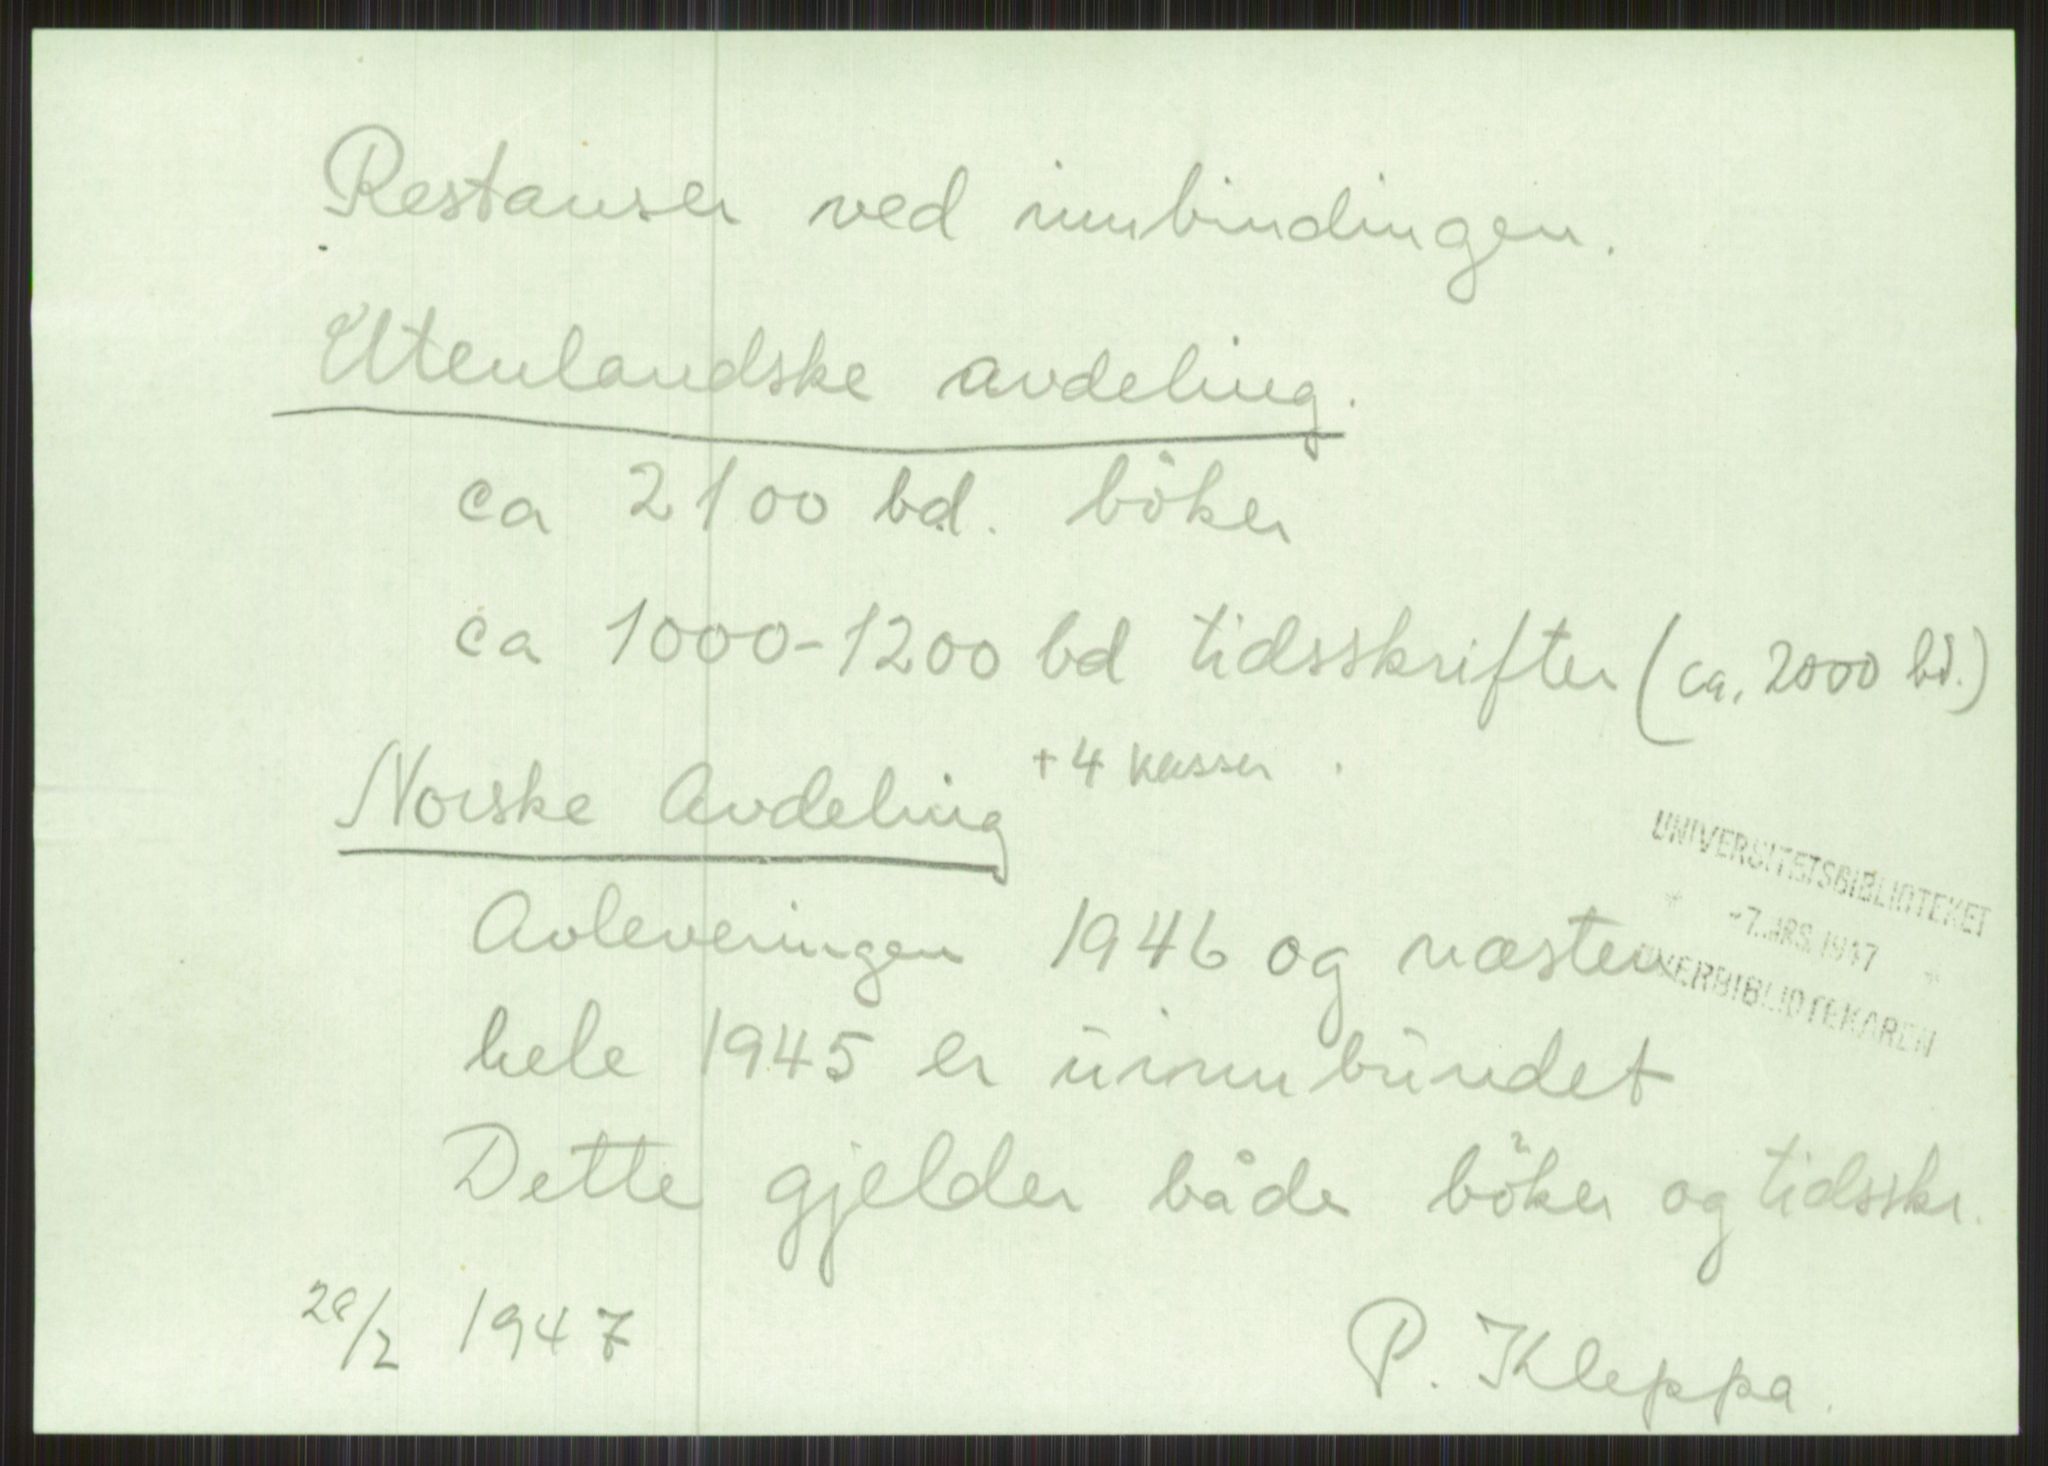 Restanser ved innbindingen.
Utenlandske avdeling.
ca 2100 bd. böker
ca 1000-1200 bd tidsskrifter (ca. 2000 bd.)
+ 4 kasser
Norske Avdeling
Avleveringen 1946 og næsten
hele 1945 er uinnbundet
Dette gjelder både böker og tidsskr.
28/2 1947
P. Kleppa.
UNIVERSITETSBIBLIOTEKET
* -7.MRS.1947 *
OVERBIBLIOTEKAREN